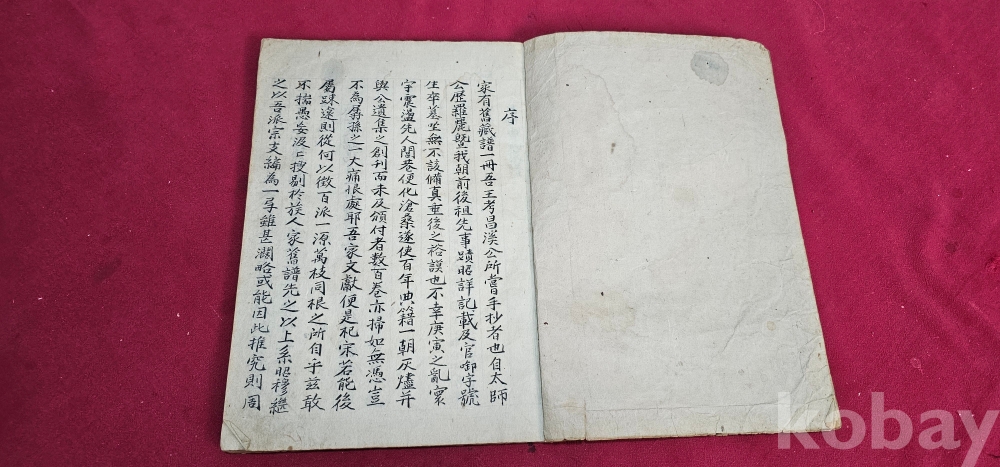 序
家有舊藏譜一冊吾王考昌溪公所嘗手抄者也自太師
公歷羅麗曁我朝前後祖先事蹟昭詳記載及官啣字號
生卒墓坐無不該備眞垂後之裕謨也不幸庚寅之亂寰
宇震盪先人閭巷便化滄桑遂使百年典籍一朝灰燼幷
與公遺集之創刊而未及頒付者数百巻亦掃如無憑豈
不為孱孫之一大痛恨處耶吾家文獻便是杞宋若能後
屬踈遠則從何以徵百派一源萬枝同根之所自乎玆敢
不揣愚妄汲〻搜剔於族人家舊譜先之以上系昭穆繼
之以吾派宗支編為一弓雖甚濶略或能因此推究則周
kobay